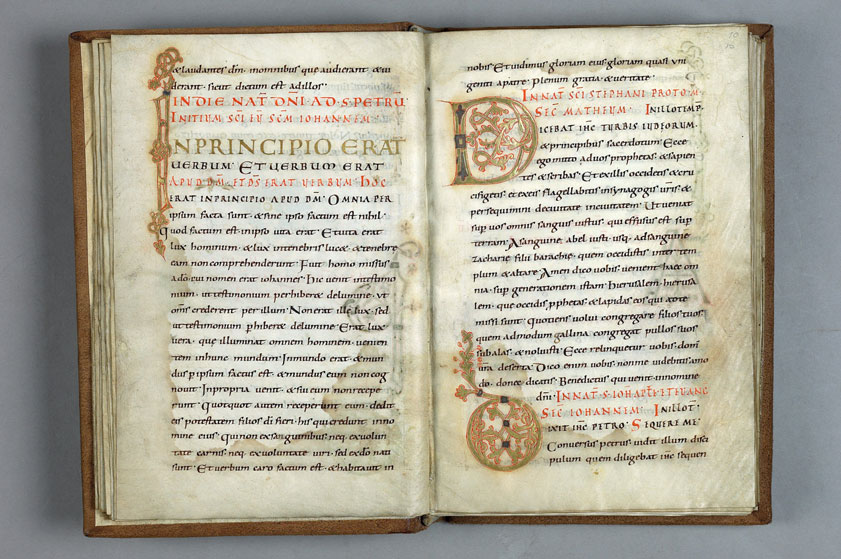 & laudantes dm̄. inomnibus que audierant & ui
derant. sicut dictum est adillos.
INDIE NAT̄ DN̄I AD S PETRŪ
INITIUM SC̄I EU SCDM̄ IOHANNEM
INPRINCIPIO ERAT
UERBUM. ET UERBUM ERAT
APUD DM̄. ET DS̄ ERAT UERBUM. HOC
ERAT INPRINCIPIO APUD DM̄. OMNIA PER
ipsum facta sunt. & sine ipso factum est nihil.
quod factum est. inipso uita erat. Et uita erat
lux hominum. & lux intenebris luc&. & tenebre
eam non comprehenderunt. Fuit homo missus
adō. cui nomen erat iohannes. hic uenit intestimo
nium. ut testimonium perhiber& delumine. ut
om̄s crederent per illum. Non erat ille lux. sed
ut testimonium phiber& delumine. Erat lux
uera. que illuminat omnem hominem. uenien
tem inhunc mundum. Inmundo erat. & mun
dus p ipsum factus est. & mundus eum non cog
nouit. Inpropria uenit. & sui eum non recepe
runt. Quotquot autem receperunt eum. dedit
eis potestatem filios dī fieri. his qui credunt inno
mine eius. Qui non exsanguinibus. neq. exuolun
tate carnis. neq. exuoluntate uiri. sed exdō nati
sunt. Et uerbum caro factum est. & habitauit in
nobis. Et uidimus gloriam eius gloriam quasi uni
geniti apatre. plenum gratia & ueritate.
INNAT̄ SC̄I STEPHANI PROTOM̄
SEC̄ MATHEUM. INILLOTEMP.
DICEBAT IHC̄ TURBIS IUDEORUM.
& principibus sacerdotum. Ecce
ego mitto aduos proph&as. & sapien
tes & scribas. Et exillis occid&is. & cru
cifig&is. & exeis flagellabitis insynagogis uris̄. &
persequimini deciuitate inciuitatem. Ut ueniat
sup uos omnis sanguis iustus. qui effusus est sup
terram. Asanguine abel iusti. usq. adsanguinē
zacharie filii barachie. quem occidistis inter tem
plum & altare. Amen dico uobis. uenient haec om
nia. sup generationem istam. hierusalem. hierusa
lem. que occidis pph&as. & lapidas eos qui adte
missi sunt. Quotiens uolui congregare filios tuos
quem admodum gallina congregat pullos suos
subalas. & noluisti. Ecce relinquetur uobis. dom̄
ura deserta. Dico enim uobis. non me uidebitis amo
do. donec dicatis. Benedictus qui uenit innomine
dn̄i. INNAT̄ S IOH APL̄I ET EUANḠ
SEC̄ IOHANNEM. INILLOT̄.
DIXIT IHC̄ PETRO. SEQUERE ME.
Conuersus petrus. uidit illum disci
pulum quem diligebat ihc̄ sequen